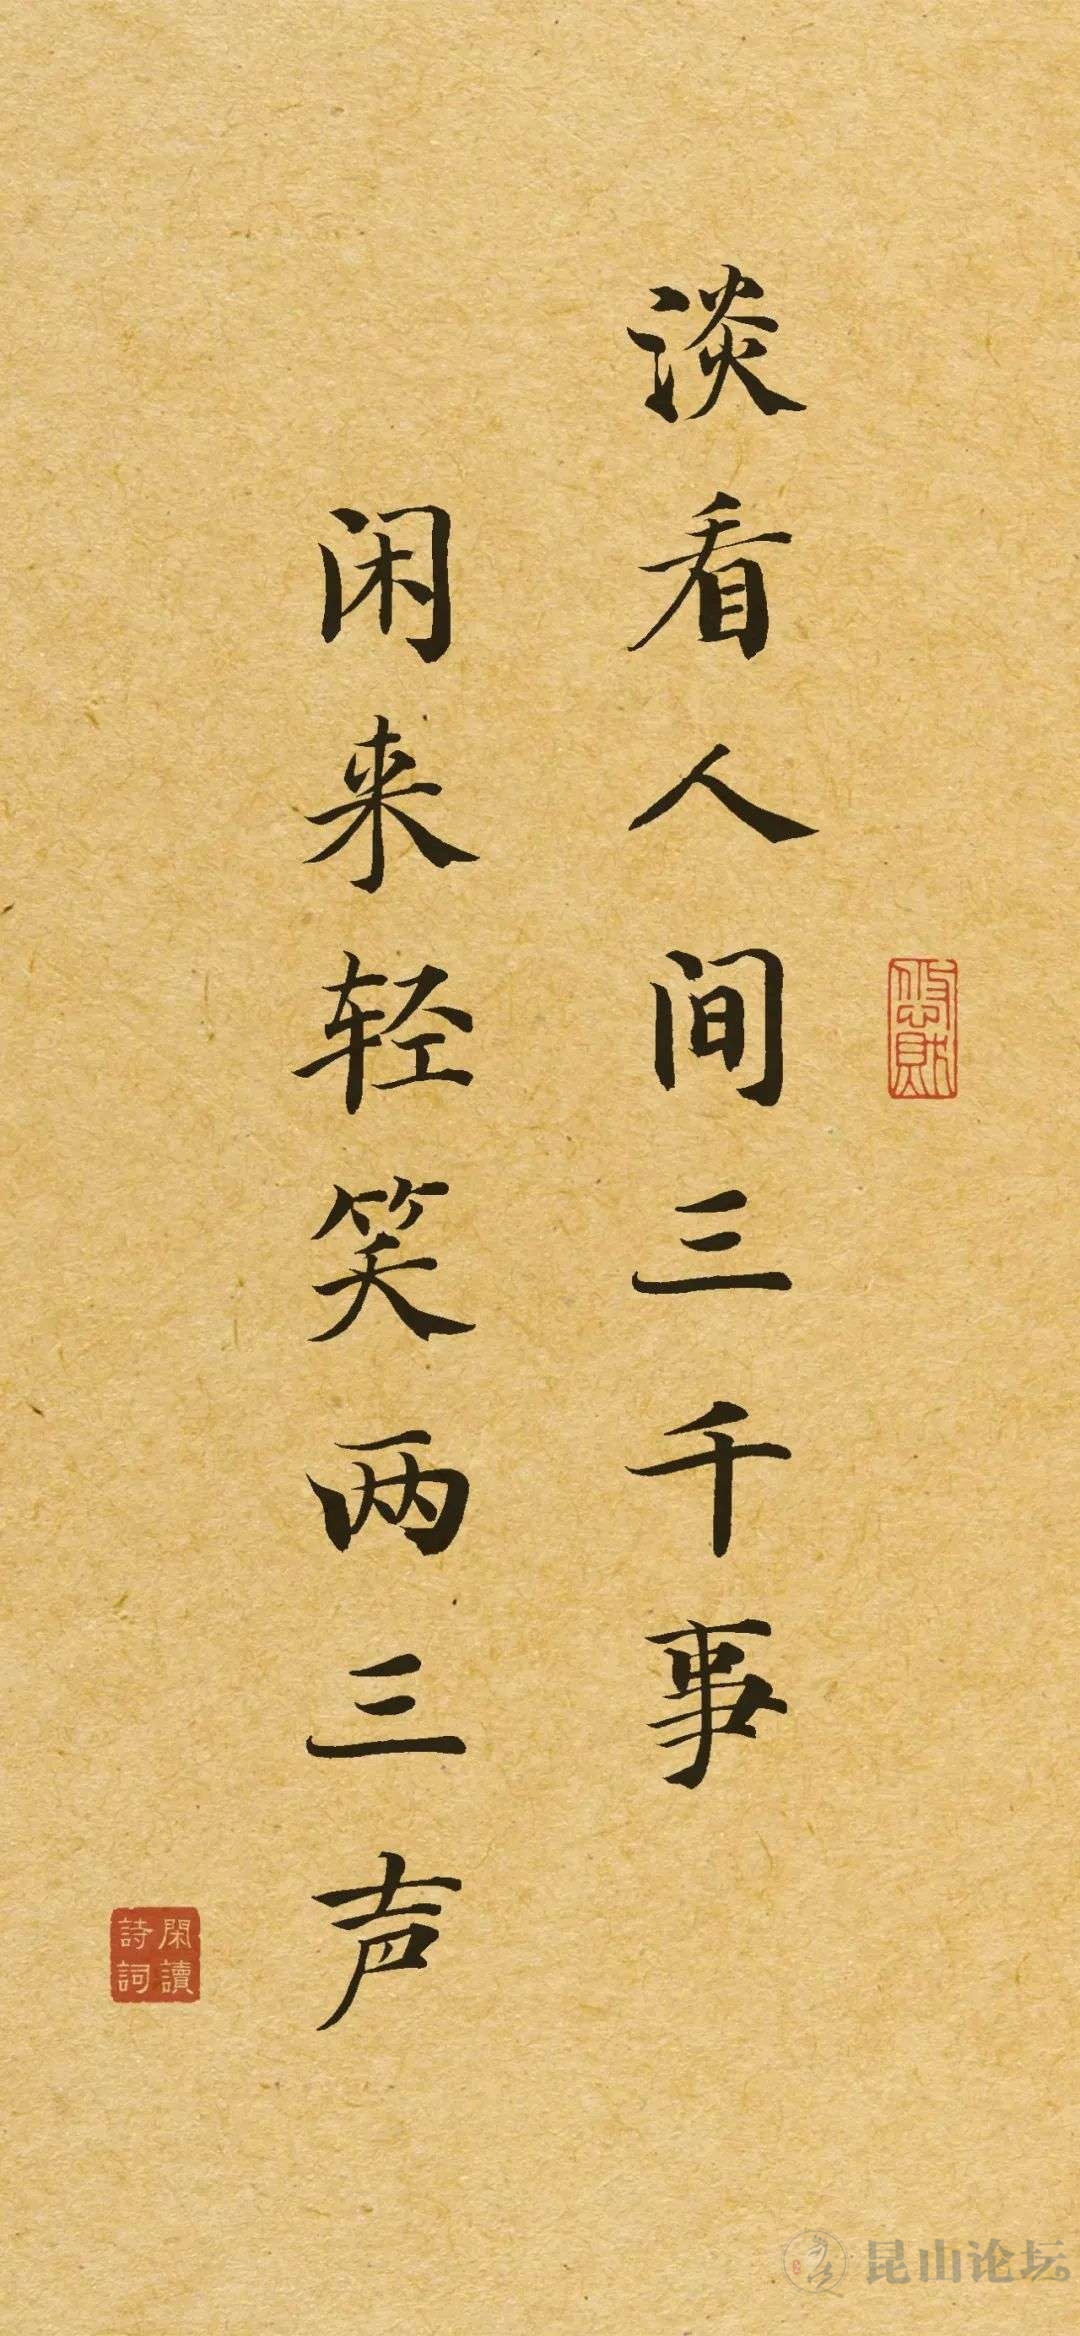 淡看人间三千事
闲来轻笑两三声
閑讀
詩詞
昆山论坛